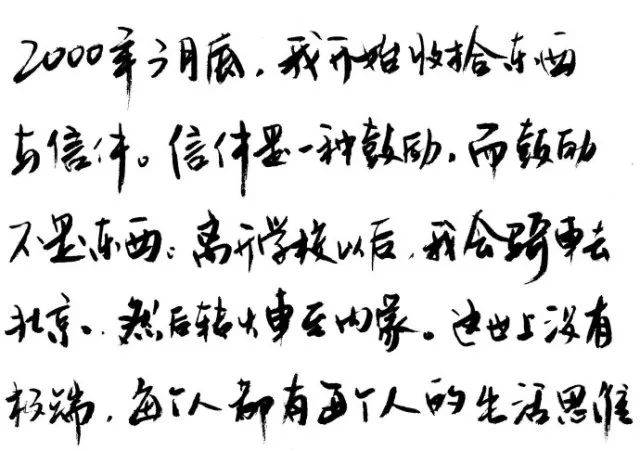 2000年3月底，我开始收拾东西
与信件。信件是一种鼓励，而鼓励
不是东西；离开学校以后，我会骑车去
北京。然后转火车至内蒙。这世上没有
极端，每个人都有每个人的生活思维